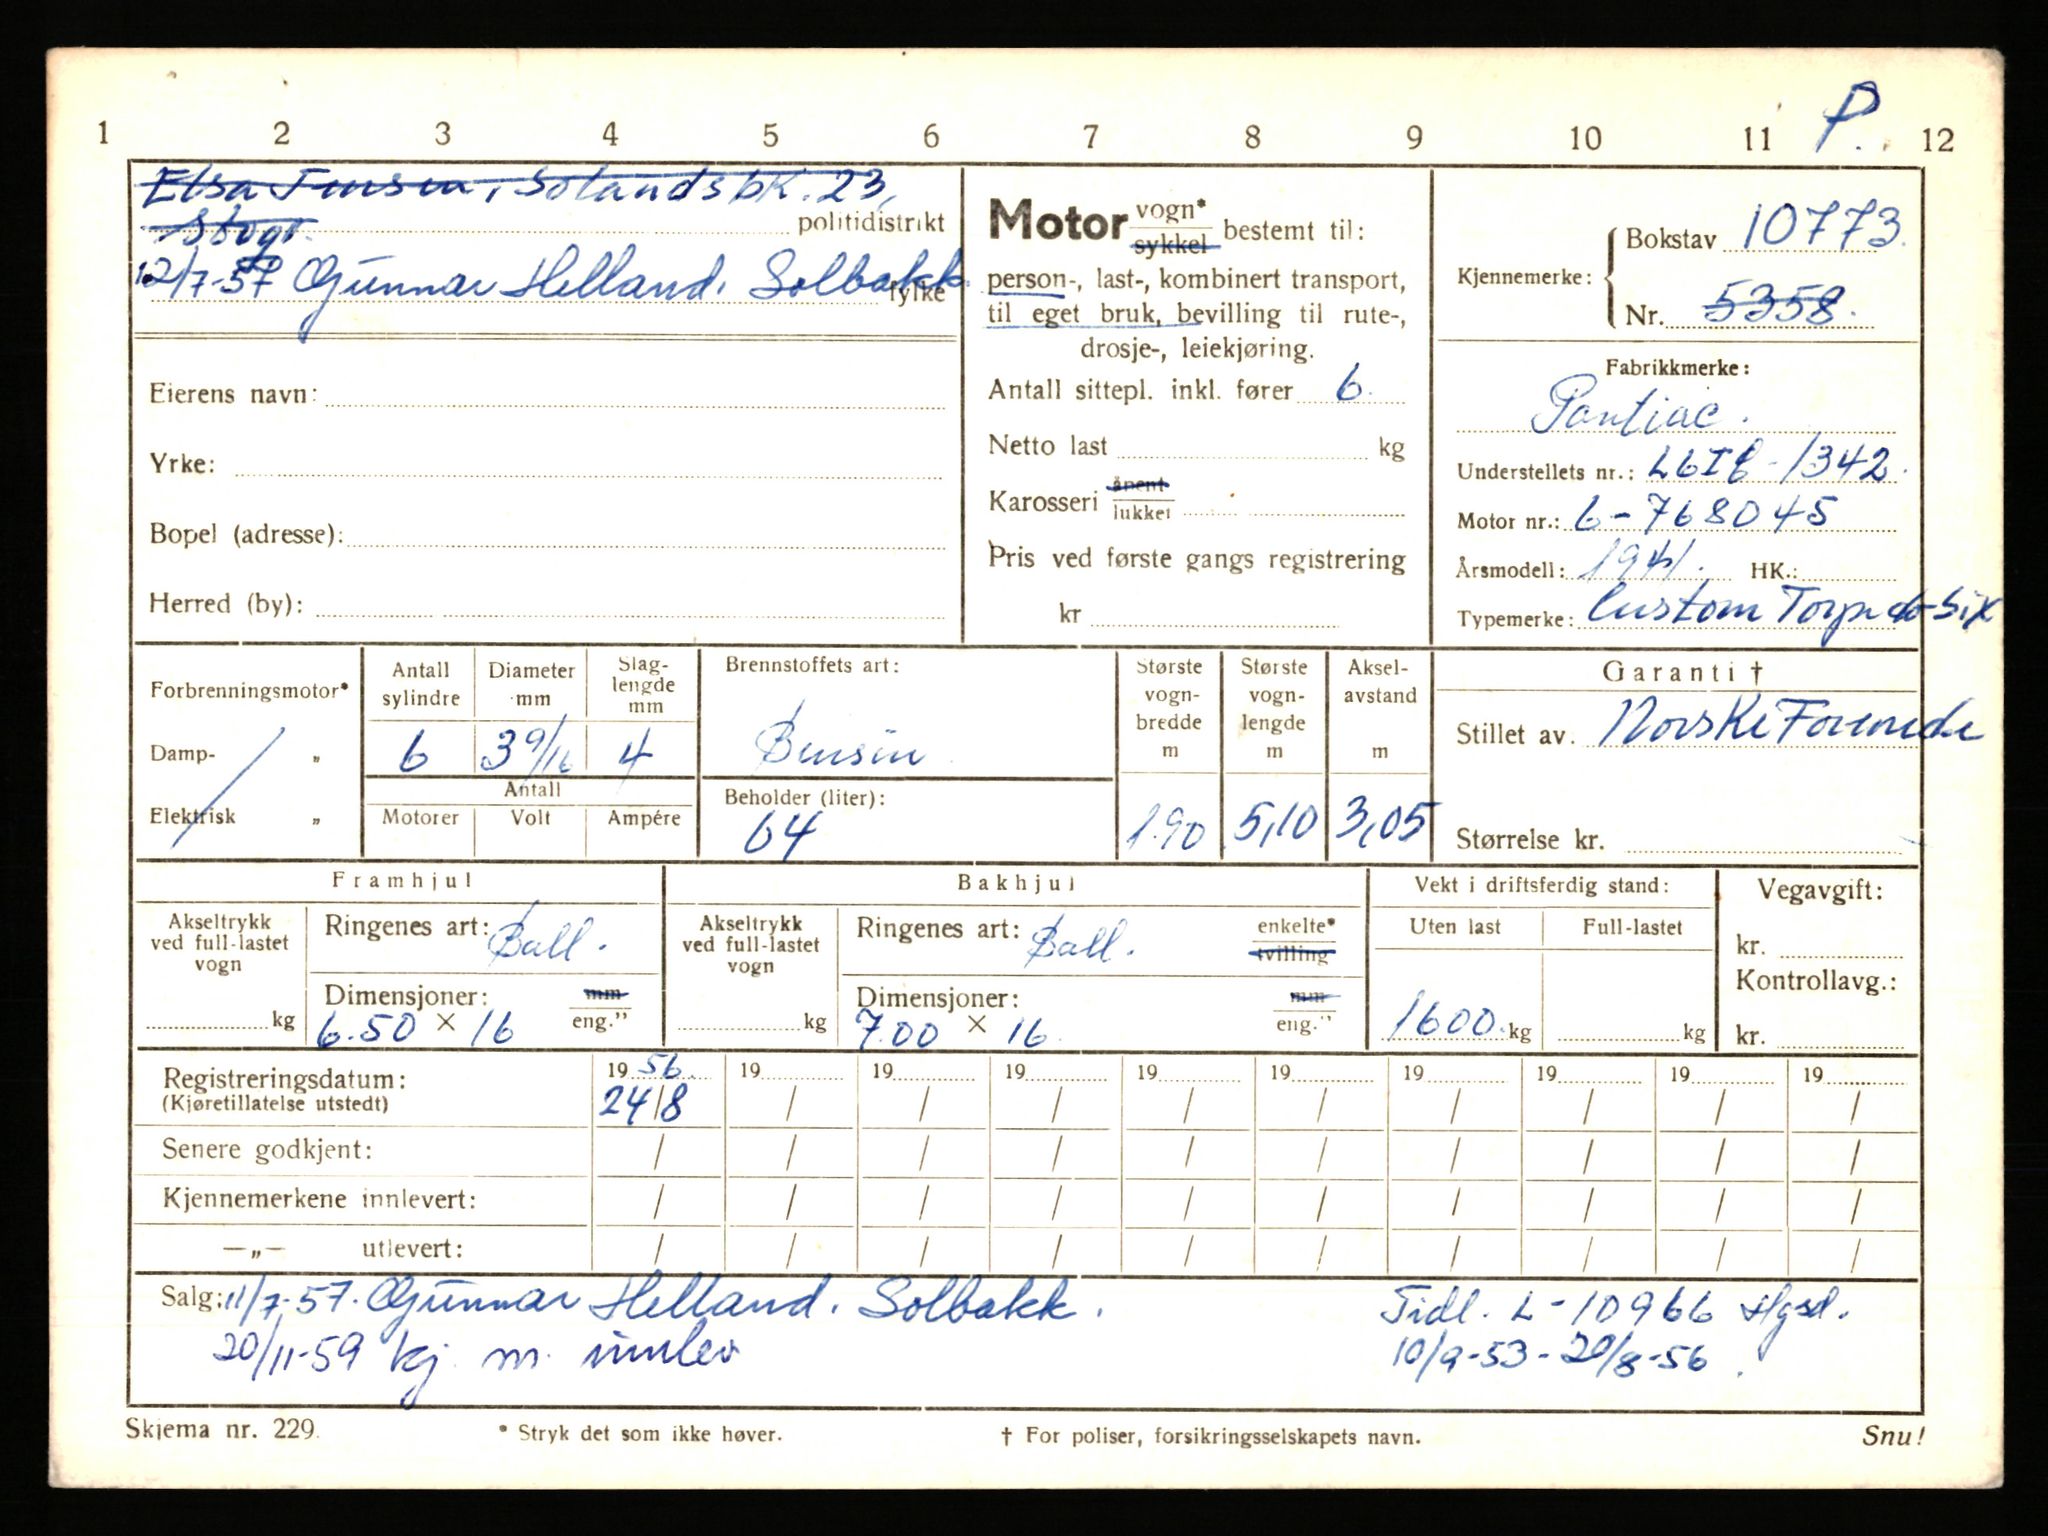 P.
1 2 3 4 5 6 7 8 9 10 11 12
Elsa Jensen, Solandsbk. 23,
Stvgr. politidistrikt
12/7-57 Gunnar Helland. Solbakk. fylke
Eierens navn:
Yrke:
Bopel (adresse):
Herred (by):
Motor vogn* sykkel bestemt til:
person-, last-, kombinert transport,
til eget bruk, bevilling til rute-,
drosje-, leiekjøring.
Antall sittepl. inkl. fører 6.
Netto last kg
Karosseri åpent lukket
Pris ved første gangs registrering
kr
Kjennemerke: Bokstav 10773.
Nr. 5358.
Fabrikkmerke:
Pontiac.
Understellets nr.: -1342.
Motor nr.: 6-768045
Årsmodell: 1941. HK.:
Typemerke: Custom Torpedo-Six
Forbrenningsmotor*
Damp- „
Elektrisk „
Antall sylindre
Diameter mm
Slag-lengde mm
6 3 9/16 4
Antall
Motorer Volt Ampére
Brennstoffets art:
Bensin
Beholder (liter):
64
Største vogn-bredde m
1.90
Største vogn-lengde m
5,10
Aksel-avstand m
3,05
Garanti †
Stillet av. Norske Forenede
Størrelse kr.
Framhjul
Akseltrykk ved full-lastet vogn
kg
Ringenes art: Ball.
Dimensjoner: mm
6.50 × 16 eng."
Bakhjul
Akseltrykk ved full-lastet vogn
kg
Ringenes art: Ball. enkelte* tvilling
Dimensjoner: mm
7.00 × 16. eng."
Vekt i driftsferdig stand:
Uten last Full-lastet
1600. kg kg
Vegavgift:
kr.
Kontrollavg.:
kr.
Registreringsdatum: 19 56. 19 19 19 19 19 19 19 19 19
(Kjøretillatelse utstedt) 24/8 / / / / / / / / /
Senere godkjent: / / / / / / / / / /
Kjennemerkene innlevert: / / / / / / / / / /
—„— utlevert: / / / / / / / / / /
Salg: 11/7-57. Gunnar Helland. Solbakk. Tidl. L-10966 Hgsd.
20/11-59 kj. m. innlev 10/9-53-20/8-56.
Skjema nr. 229. * Stryk det som ikke høver. † For poliser, forsikringsselskapets navn. Snu!